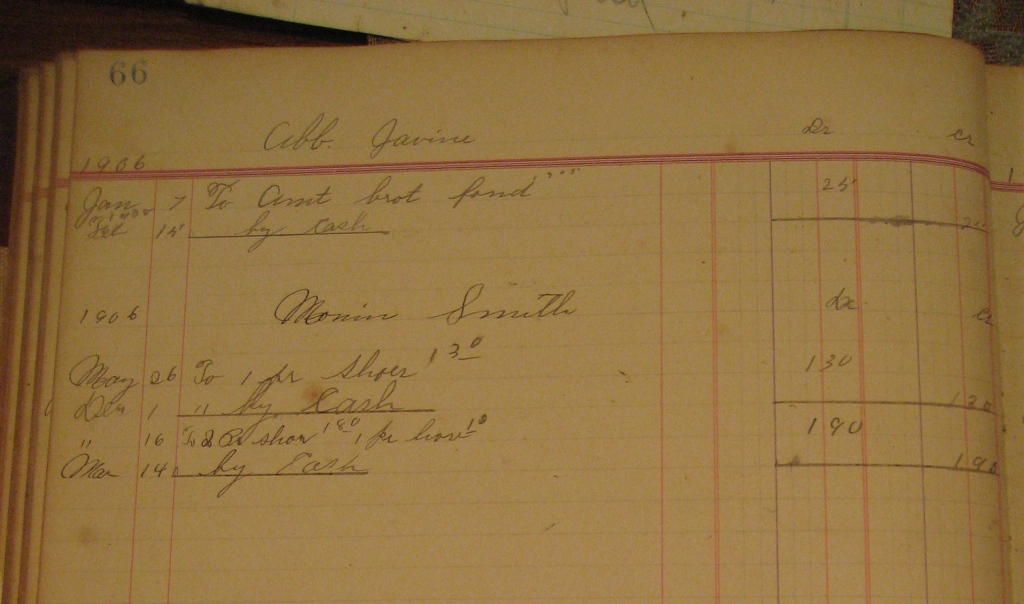 66
Abb. Javine Dr Cr
1906
Jan 7 To Amt brot fond 1905 25
Feb 15 by Cash 25
1906 Monin Smith Dr Cr
May 26 To 1 pr shoes 130 130
Dec 1 " by Cash 130
" 16 To 2 Pr shoes 180 1 pr hose 10 190
Mar 14 by Cash 190